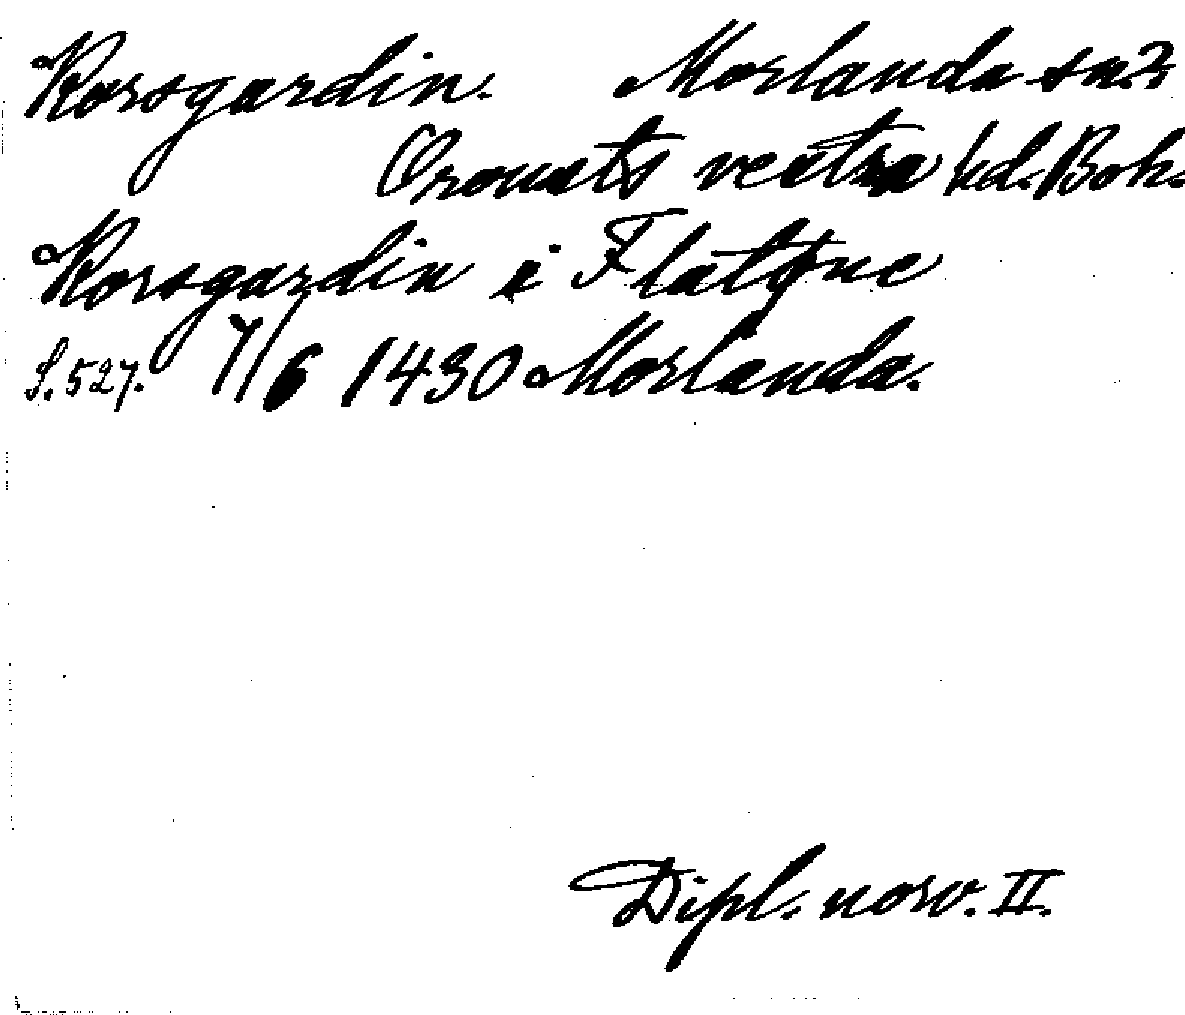 Korsgardin. Morlanda sn?
Orousts vestra hd. Boh.
Korsgardin i Flatøne
S. 527. 7/6 1430 Morlanda.
Dipl. norv. II.